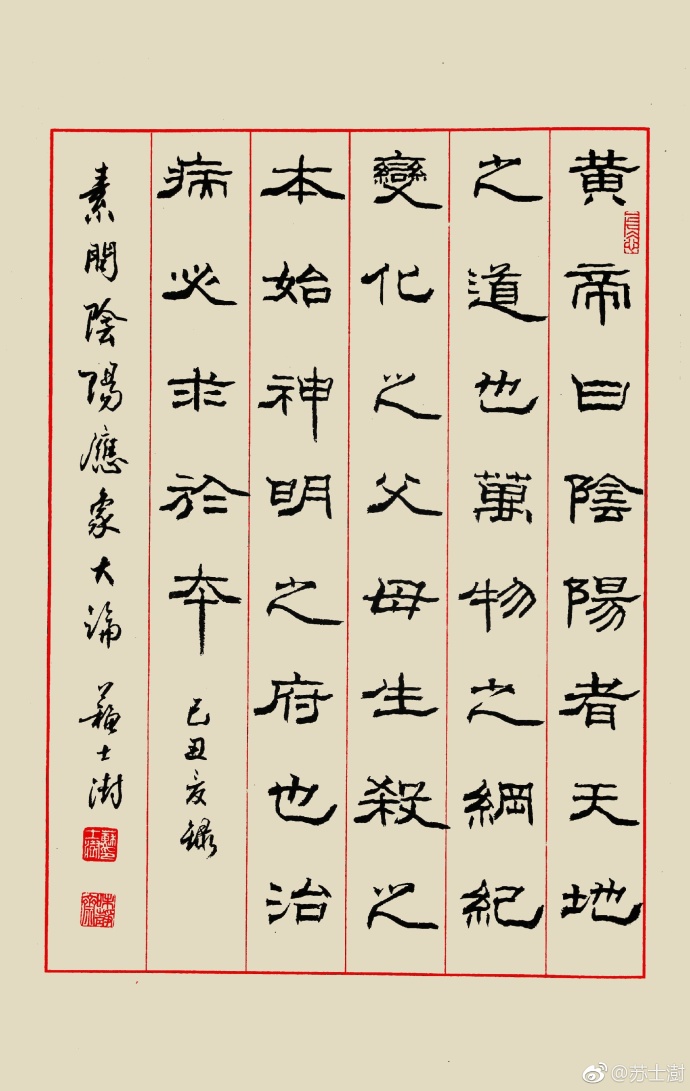 黃帝曰陰陽者天地
之道也萬物之綱紀
變化之父母生殺之
本始神明之府也治
病必求於本
己丑夏錄
素問陰陽應象大論 蘇士澍
@苏士澍